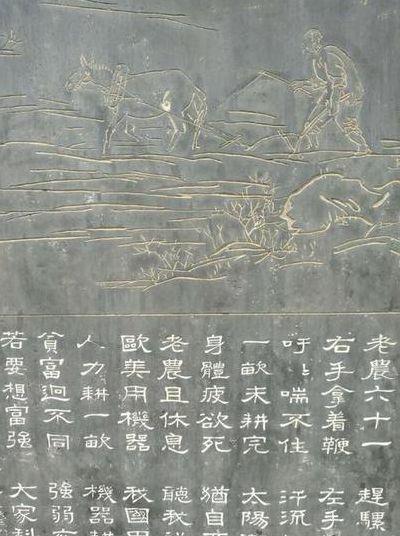 老農六十一 趕騾
右手拿着鞭 左手
吁〻喘不住 汗流
一畝未耕完 太陽
身體疲欲死 猶自
老農且休息 聽我
歐美用機器 我國用
人力耕一畝 機器耕
貧富迥不同 強弱
若要想富強 大家